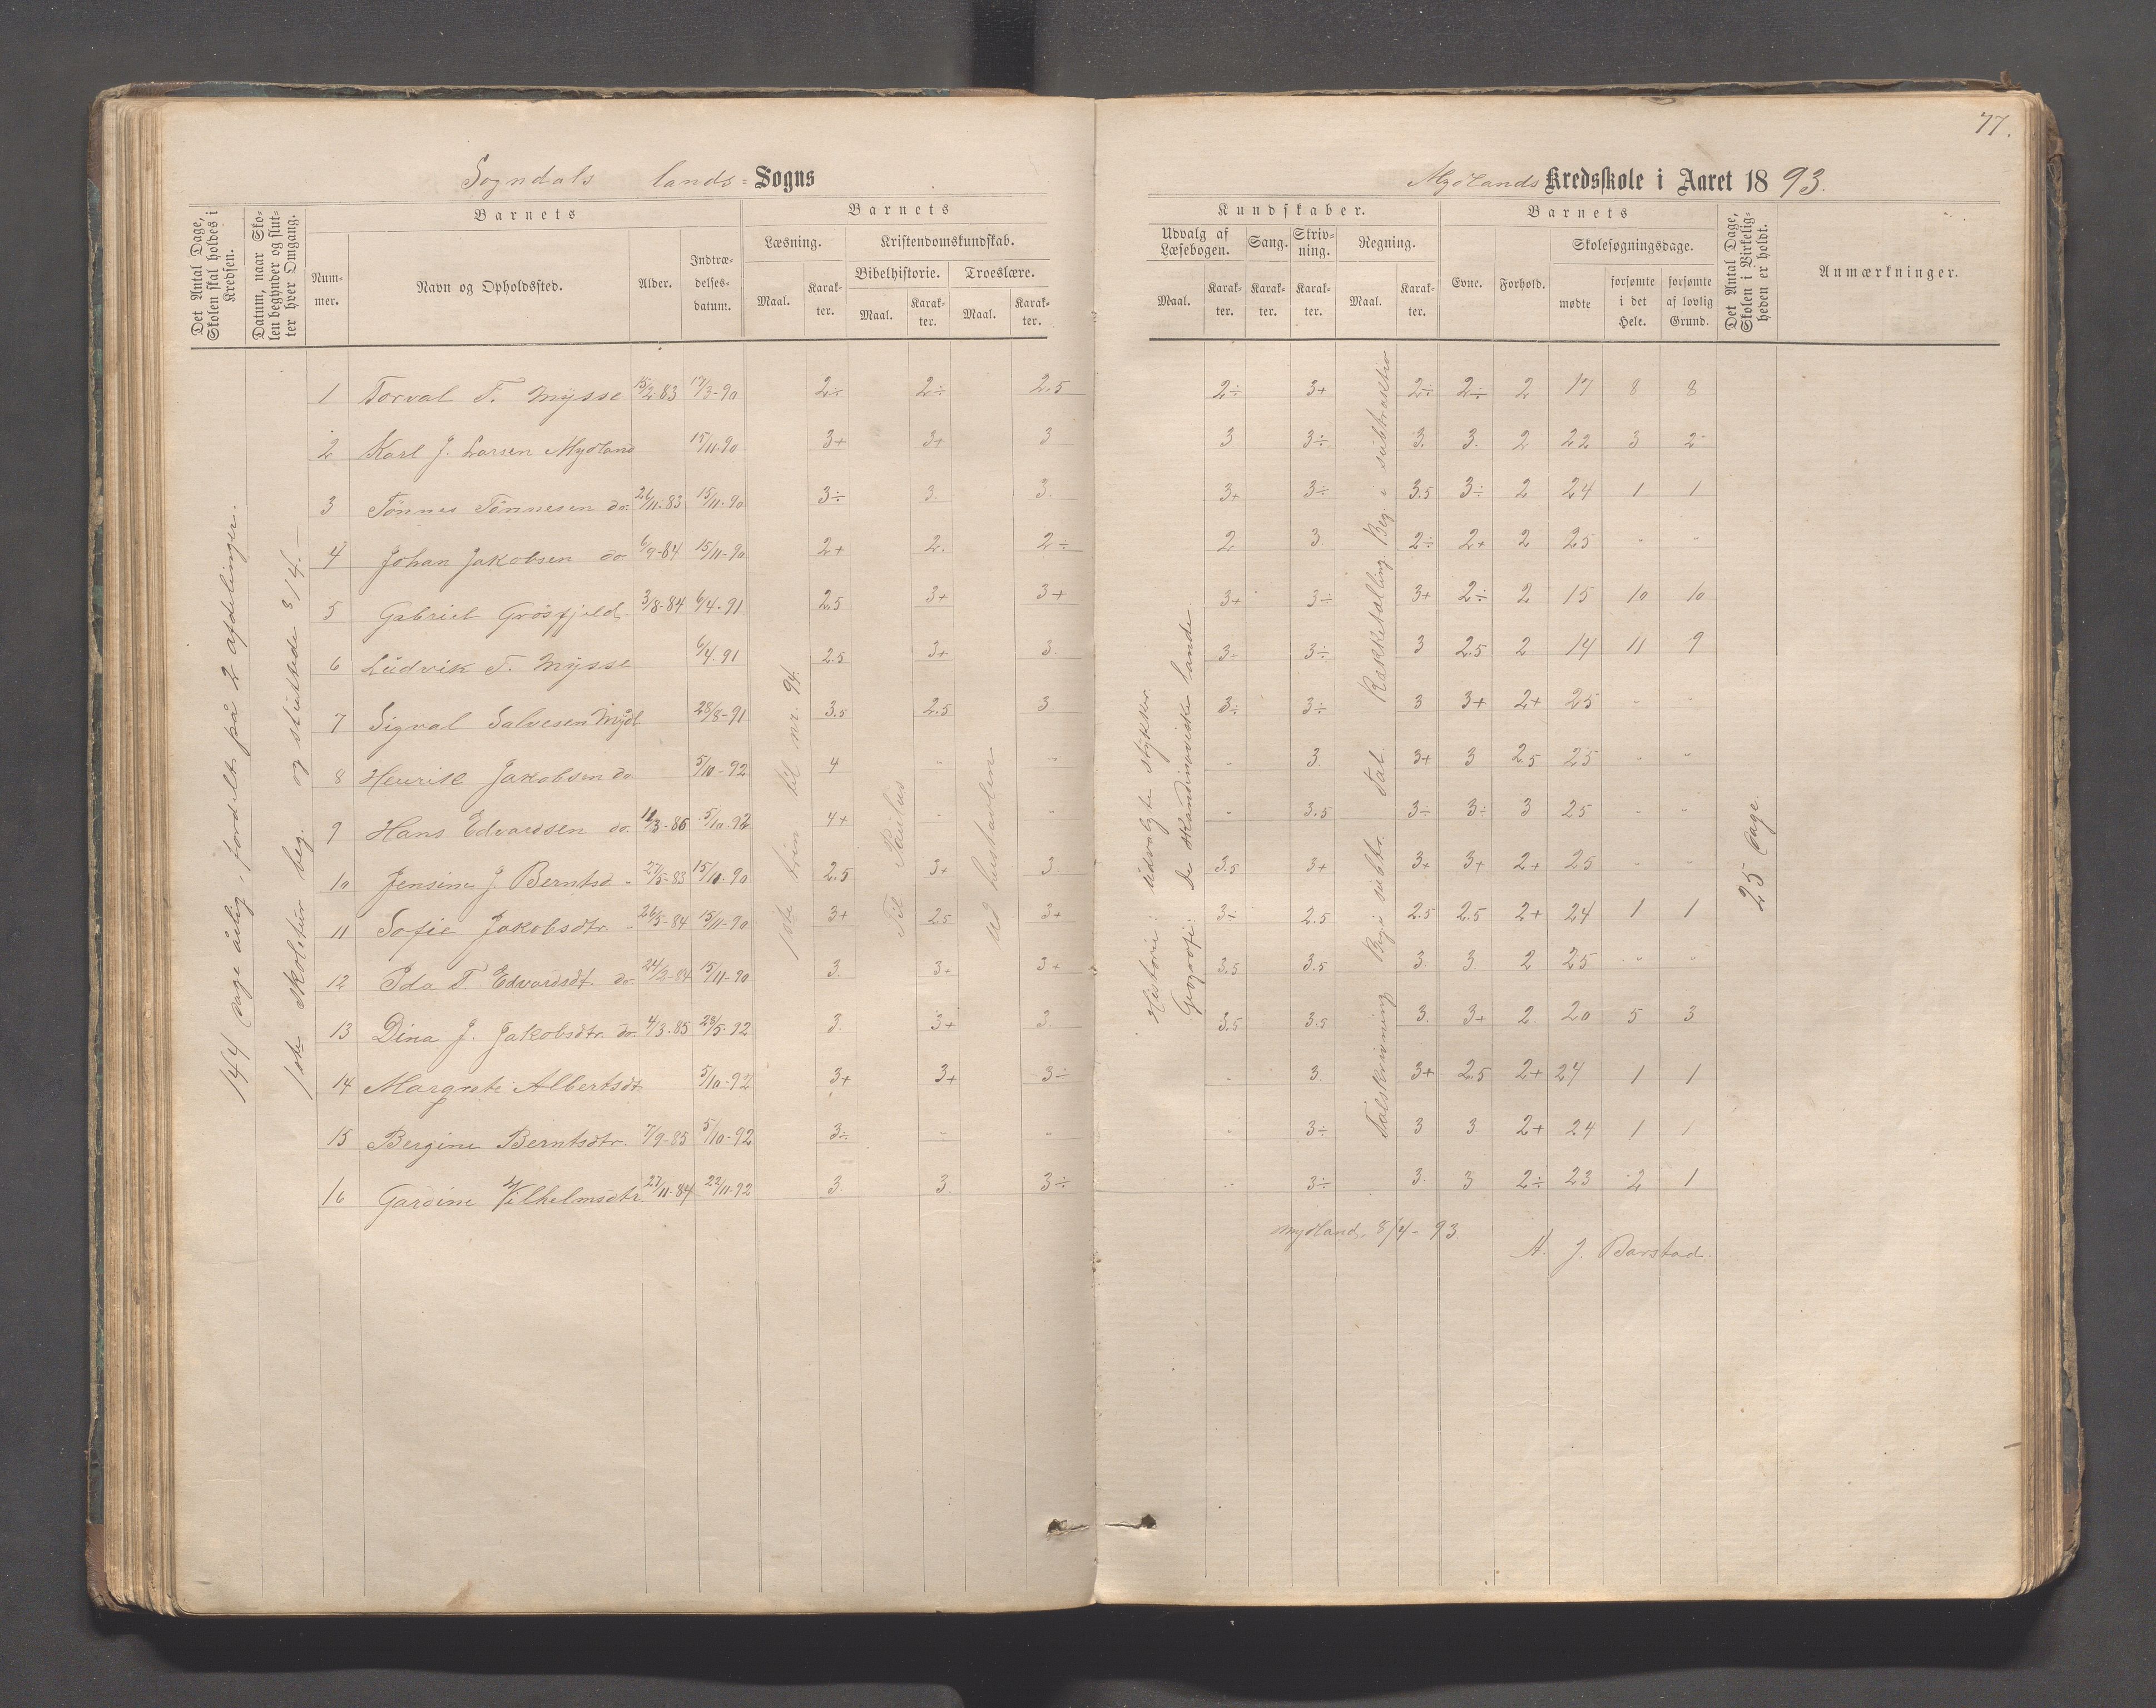 77.
Sogndals lands= Sogns
Mydlands Kredsskole i Aaret 18 93.
Det Antal Dage, Skolen skal holdes i Kredsen.
Datum, naar Skolen begynder og slutter hver Omgang.
Barnets
Nummer.
Navn og Opholdssted.
Alder.
Indtrædelsesdatum.
Barnets
Læsning.
Maal.
Karakter.
Kristendomskundskab.
Bibelhistorie.
Maal.
Karakter.
Troeslære.
Maal.
Karakter.
Kundskaber.
Udvalg af Læsebogen.
Maal.
Karakter.
Sang.
Karakter.
Skrivning.
Karakter.
Regning.
Maal.
Karakter.
Barnets
Evne.
Forhold.
Skolesøgningsdage.
mødte
forsømte i det Hele.
forsømte af lovlig Grund.
Det Antal Dage, Skolen i Virkeligheden er holdt.
Anmærkninger.
144 dage årlig, fordelt på 2 afdelinger.
1ste skoletur beg. og sluttede 8/4.
1ste trin til nr. 94.
Til Paulus
Ud hustavlen
Historie: Udvalgte stykker.
Geografi: De skandinaviske lande.
Rækketælling Beg. i subtraktion
Talskrivning Beg. i subtr. Tal.
25 dage.
1 Torval T. Mysse 15/2 83 17/3-90 2÷ 2÷ 2.5 2÷ 3+ 2÷ 2÷ 2 17 8 8
2 Karl J. Larsen Mydland 15/11.90 3+ 3+ 3 3 3÷ 3. 3. 2 22 3 2
3 Tönnes Tönnesen do. 26/11.83 15/11.90 3÷ 3. 3. 3+ 3÷ 3.5 3÷ 2 24 1 1
4 Johan Jakobsen do 6/9-84 15/11-90 2+ 2. 2÷ 2 3 2÷ 2+ 2 25 - -
5 Gabriel Grösfjeld. 3/8-84 6/4.91 2.5 3+ 3+ 3+ 3÷ 3+ 2÷ 2 15 10 10
6 Ludvik T. Mysse 6/4.91 2.5 3+ 3 3÷ 3÷ 3 2.5 2 14 11 9
7 Sigval Salvesen Mydl 28/8-91 3.5 2.5 3. 3÷ 3÷ 3 3+ 2+ 25 - -
8 Henrik Jakobsen do 5/10-92 4 - - - 3 3+ 3 2.5 25 - -
9 Hans Edvardsen do. 11/3-86 5/10.92 4+ - - - 3.5 3÷ 3÷ 3 25 - -
10 Jensine J. Berntsd - 27/5-83 15/10.90 2.5 3+ 3 3.5 3+ 3+ 3+ 2+ 25 - -
11 Sofie Jakobsdtr. - 26/5-84 15/11-90 3+ 2.5 3+ 3÷ 2.5 2.5 2.5 2+ 24 1 1
12 Ida T. Edvardsdt. do. 24/2-84 15/11-90 3. 3+ 3+ 3.5 3.5 3 3. 2 25 - -
13 Dina J. Jakobsdtr. do. 4/3.85 28/5.92 3. 3+ 3. 3.5 3.5 3. 3+ 2. 20 5 3
14 Margrete Albertsdt 5/10-92 3+ 3+ 3÷ - 3. 3+ 2.5 2+ 24 1 1
15 Bergine Berntsdtr. 7/9-85 5/10-92 3÷ - - - 3÷ 3 3 2+ 24 1 1
16 Gardine Vilhelmsdtr. 27/11-84 22/11-92 3. 3. 3÷ - 3÷ 3. 3 2÷ 23 2 1
Mydland, 8/4-93.
A. J. Barstad.